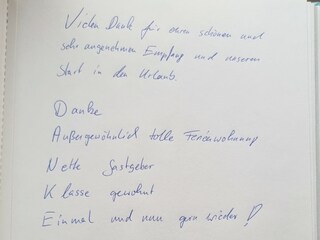 Vielen Dank für euren schönen und
sehr angenehmen Empfang und unseren
Start in den Urlaub.
Danke
Außergewöhnlich tolle Ferienwohnung
Nette Gastgeber
Klasse gewohnt
Einmal und nun gern wieder!